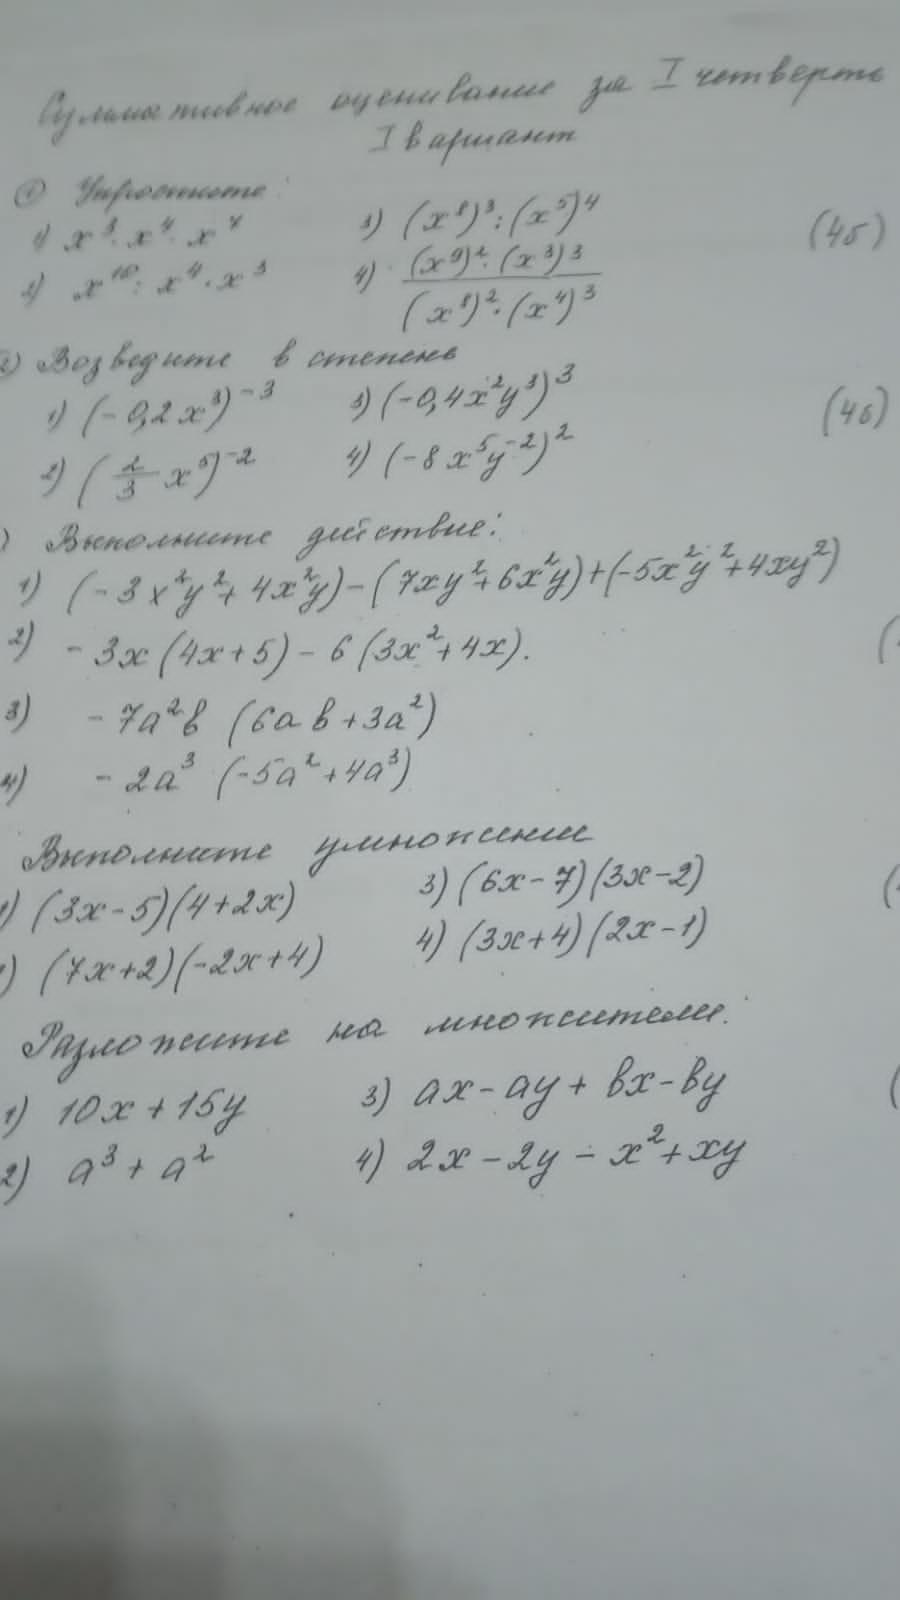 Суммативное оценивание за I четверть
I вариант
① Упростите:
1) x³ · x⁴ · x⁷ 3) (x⁸)³ : (x⁵)⁴ (4б)
2) x¹⁰ : x⁴ · x³ 4) (x⁹)² · (x³)³ / (x⁸)² · (x⁴)³
2) Возведите в степень
1) (-0,2x³)⁻³ 3) (-0,4x²y³)³ (4б)
2) (2/3 x⁵)⁻² 4) (-8x⁵y⁻²)²
) Выполните действие:
1) (-3x²y² + 4x²y) - (7xy² + 6x²y) + (-5x²y² + 4xy²)
2) -3x (4x + 5) - 6 (3x² + 4x). (
3) -7a²b (6ab + 3a²)
4) -2a³ (-5a² + 4a³)
Выполните умножение
1) (3x - 5)(4 + 2x) 3) (6x - 7)(3x - 2) (
) (7x + 2)(-2x + 4) 4) (3x + 4)(2x - 1)
Разложите на множители:
1) 10x + 15y 3) ax - ay + bx - by (
2) a³ + a² 4) 2x - 2y - x² + xy